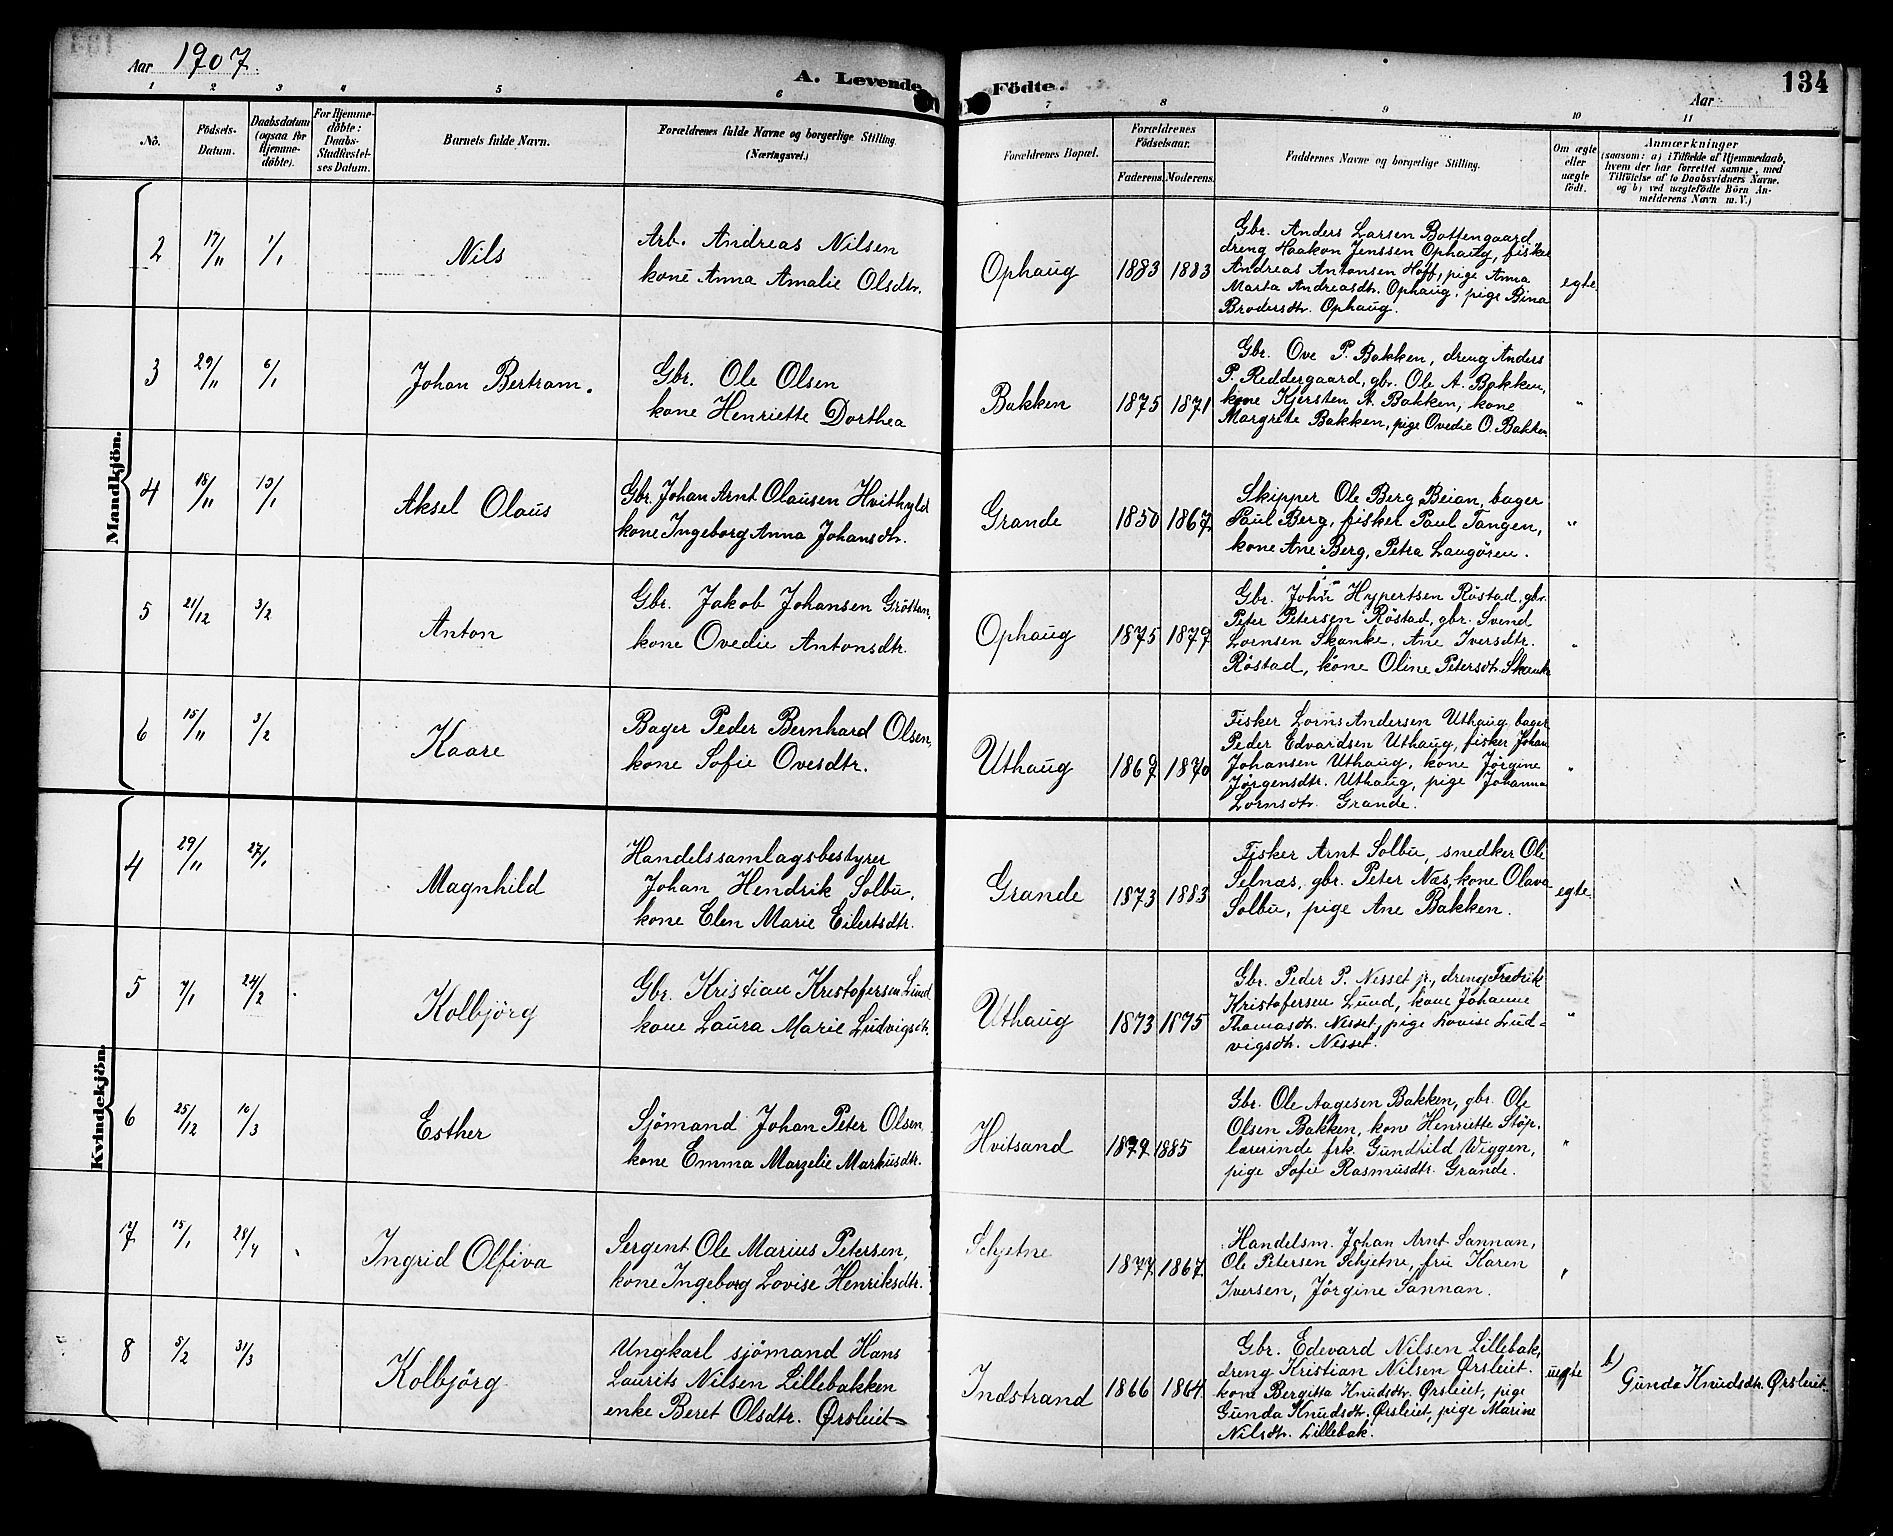 Aar 1907.
A. Levende Födte.
134
Aar
1 2 3 4 5 6 7 8 9 10 11
No.
Födsels-
Datum.
Daabsdatum
(ogsaa for
Hjemme-
döbte).
For Hjemme-
döbte:
Daabs-
Stadfæstel-
ses Datum.
Barnets fulde Navn.
Forældrenes fulde Navne og borgerlige Stilling.
(Næringsvei.)
Forældrenes Bopæl.
Forældrenes
Födselsaar.
Faderens. Moderens.
Faddernes Navne og borgerlige Stilling.
Om ægte
eller
uægte
födt.
Anmærkninger
(saasom: a) i Tilfælde af Hjemmedaab,
hvem der har forrettet samme, med
Tilföielse af to Daabsvidners Navne.
og b) ved uægtefödte Börn An-
melderens Navn m. V.)
Mandkjön.
2 17/11 1/1 Nils
Arb. Andreas Nilsen
kone Anna Amalie Olsdtr.
Ophaug 1883 1883
Gbr. Anders Larsen Bottengaard,
dreng Haakon Jenssen Ophaug, fisker
Andreas Antonsen Hoff, pige Anna
Marta Andreasdtr. Ophaug, pige Bina
Brodersdtr. Ophaug.
egte
3 29/11 6/1 Johan Bertram.
Gbr. Ole Olsen
kone Henriette Dorthea
Bakken 1875 1871
Gbr. Ove P. Bakken, dreng Anders
P. Reddergaard, gbr. Ole A. Bakken,
kone Kjersten A. Bakken, kone
Margrete Bakken, pige Ovedie O. Bakken
"
4 18/11 13/1 Aksel Olaus
Gbr. Johan Arnt Olausen Hvithyld
kone Ingeborg Anna Johansdtr.
Grande 1850 1867
Skipper Ole Berg Beian, bager
Paul Berg, fisker Paul Tangen,
kone Ane Berg, Petra Laugören.
"
5 21/12 3/2 Anton
Gbr. Jakob Johansen Gröttan,
kone Ovedie Antonsdtr.
Ophaug 1875 1879
Gbr. John Hypertsen Röstad, gbr.
Peter Petersen Röstad, gbr. Svend
Lornsen Skanke. Ane Iversdtr.
Röstad, kone Oline Petersdtr. Skanke
"
6 15/11 3/2 Kaare
Bager Peder Bernhard Olsen,
kone Sofie Ovesdtr.
Uthaug 1869 1870
Fisker Lorns Andersen Uthaug, bager
Peder Edvardsen Uthaug, fisker Johan
Johansen Uthaug, kone Jörgine
Jörgensdtr. Uthaug, pige Johanna
Lornsdtr. Grande.
"
Kvindekjön.
4 29/11 27/1 Magnhild
Handelssamlagsbestyrer
Johan Hendrik Solbu,
kone Elen Marie Eilertsdtr.
Grande 1873 1883
Fisker Arnt Solbu, snedker Ole
Selnæs, gbr. Peter Næs, kone Olava
Solbu, pige Ane Bakken.
egte
5 7/1 24/2 Kolbjörg
Gbr. Kristian Kristofersen Lund
kone Laura Marie Ludvigsdtr.
Uthaug 1873 1875
Gbr. Peder P. Nesset jr., dreng Fredrik
Kristofersen Lund, kone Johanne
Thomasdtr. Nesset, pige Lovise Lud-
vigsdtr. Nesset.
"
6 25/12 10/3 Esther
Sjömand Johan Peter Olsen
kone Emma Marzelie Markusdtr.
Hvitsand 1879 1885
Gbr. Ole Aagesen Bakken, gbr. Ole
Olsen Bakken, kone Henriette Stöp.
lærerinde frk. Gundhild Wiggen,
pige Sofie Rasmusdtr. Grande.
"
7 15/1 28/4 Ingrid Olfiva
Sergent Ole Marius Petersen,
kone Ingeborg Lovise Henriksdtr.
Schjetne 1877 1867
Handelsm. Johan Arnt Sannan,
Ole Petersen Schjetne, fru Karen
Iversen, Jörgine Sannan.
"
8 5/2 31/3 Kolbjörg
Ungkarl sjömand Hans
Laurits Nilsen Lillebakken
enke Beret Olsdtr. Ørsleiet
Indstrand 1866 1864
Gbr. Edevard Nilsen Lillebak,
dreng Kristian Nilsen Ørsleiet.
kone Bergitta Knudsdtr. Ørsleiet, pige
Gunda Knudsdtr. Ørsleiet, pige Marine
Nilsdtr. Lillebak.
uegte
b) Gunda Knudsdtr. Ørsleiet.